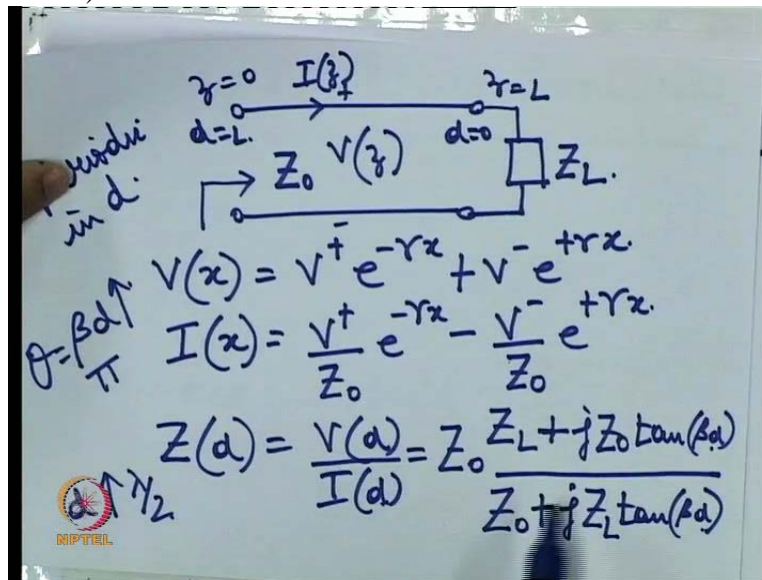 z=0 I(z) z=L
d=L. + d=0
Z₀ V(z) Z_L.
-
in d.
V(x) = V⁺ e^{-γx} + V⁻ e^{+γx}.
θ=βd↑
π
I(x) = V⁺/Z₀ e^{-γx} - V⁻/Z₀ e^{+γx}.
Z(d) = V(d)/I(d) = Z₀ (Z_L + jZ₀ tan(βd))/(Z₀ + jZ_L tan(βd))
d↑ λ/2
NPTEL